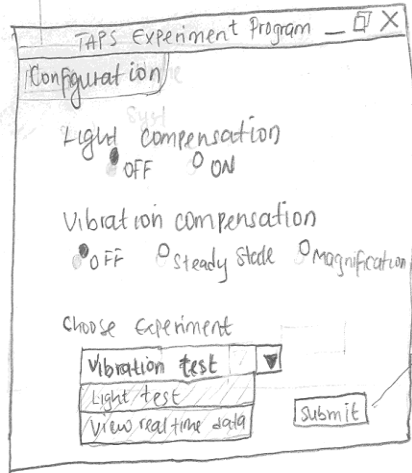 TAPS Experiment Program
Configuration
Light compensation
OFF ON
Vibration compensation
OFF Steady State Magnification
Choose Experiment
Vibration test
Light test
View realtime data
Submit